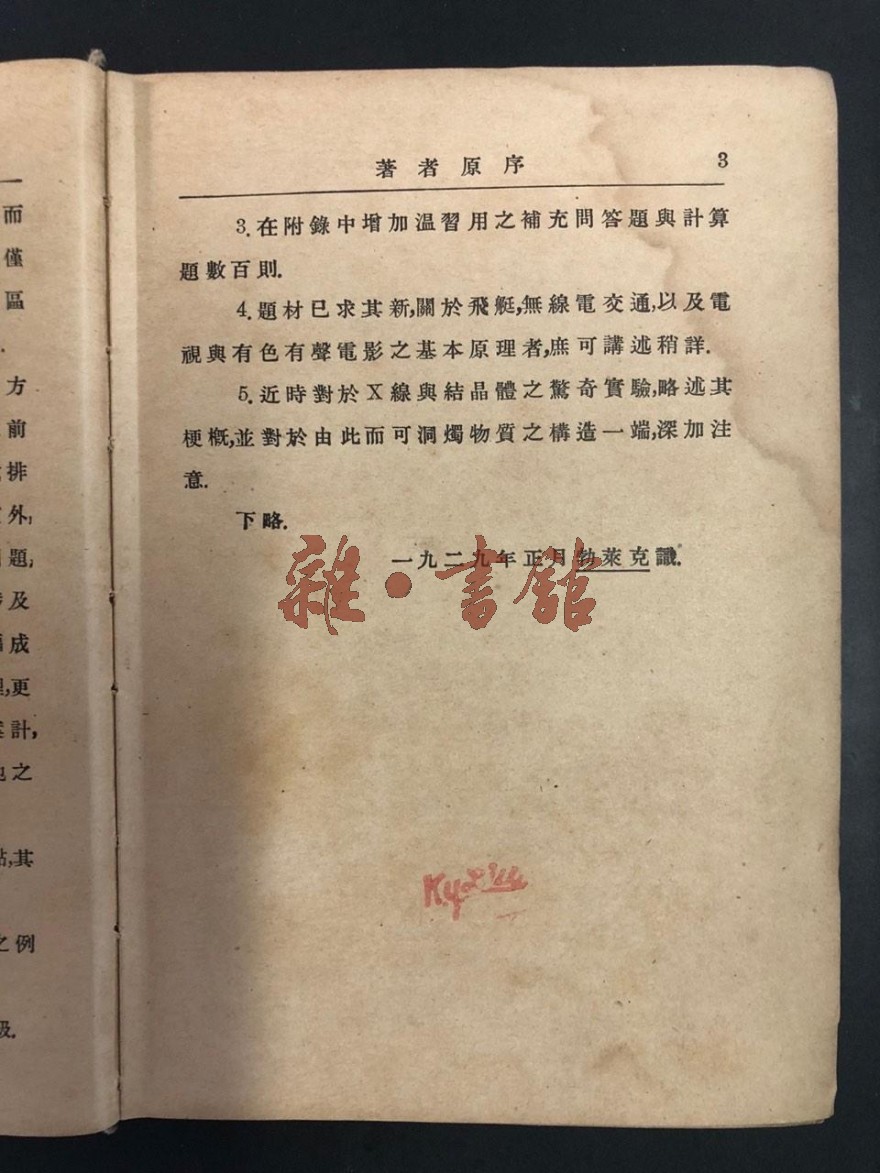 著者原序 3
3.在附錄中增加溫習用之補充問答題與計算
題數百則.
4.題材已求其新,關於飛艇,無線電交通,以及電
視與有色有聲電影之基本原理者,庶可講述稍詳.
5.近時對於X線與結晶體之驚奇實驗,略述其
梗概,並對於由此而可洞燭物质之構造一端,深加注
意.
下略.
一九二九年正月勃萊克識.
雜·書館
一
而
僅
區
.
方
前
排
外,
題,
及
成
,更
計,
之
,其
之例
級.